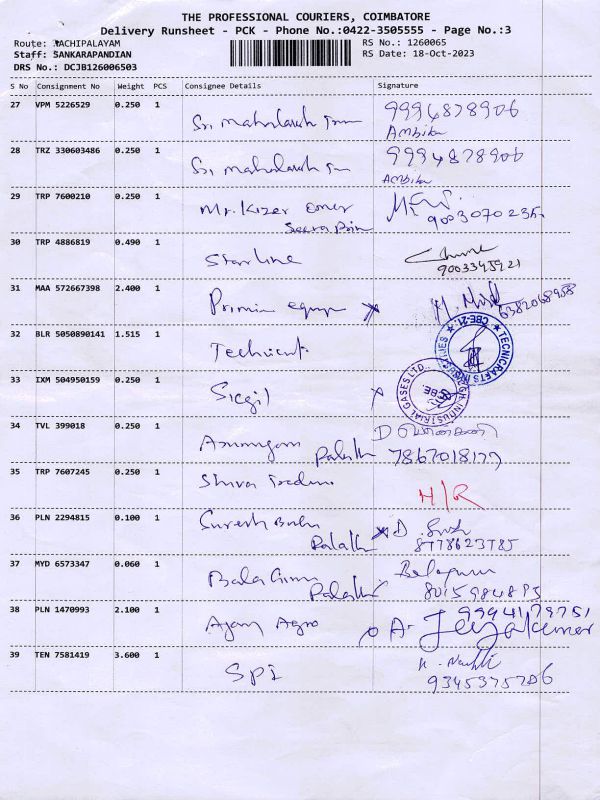 THE PROFESSIONAL COURIERS, COIMBATORE
Delivery Runsheet - PCK - Phone No.:0422-3505555 - Page No.:3
Route: MACHIPALAYAM RS No.: 1260065
Staff: SANKARAPANDIAN RS Date: 18-Oct-2023
DRS No.: DCJB126006503
S No Consignment No Weight PCS Consignee Details Signature
27 VPM 5226529 0.250 1
Sri Mahalaxmi 9994878906
Ambika
28 TRZ 330603486 0.250 1
Sri Mahalaxmi 9994878906
Ambika
29 TRP 7600210 0.250 1
Mr. Kizer Omer
9003070235
30 TRP 4886819 0.490 1
Starline
9003345921
31 MAA 572667398 2.400 1
6382068958
32 BLR 5050890141 1.515 1
TECNICRAFTS INDUSTRIES
CBE-21.
33 IXM 504950159 0.250 1
Sicgil
INDUSTRIAL GASES LTD.
CBE.
34 TVL 399018 0.250 1
Arumugam
7867018177
35 TRP 7607245 0.250 1
Shiva Traders
H/R
36 PLN 2294815 0.100 1
Suresh Babu D.
8778623785
37 MYD 6573347 0.060 1
8015984895
38 PLN 1470993 2.100 1
9994179751
Agro A. Jeyakumar
39 TEN 7581419 3.600 1
SPI
9345375706